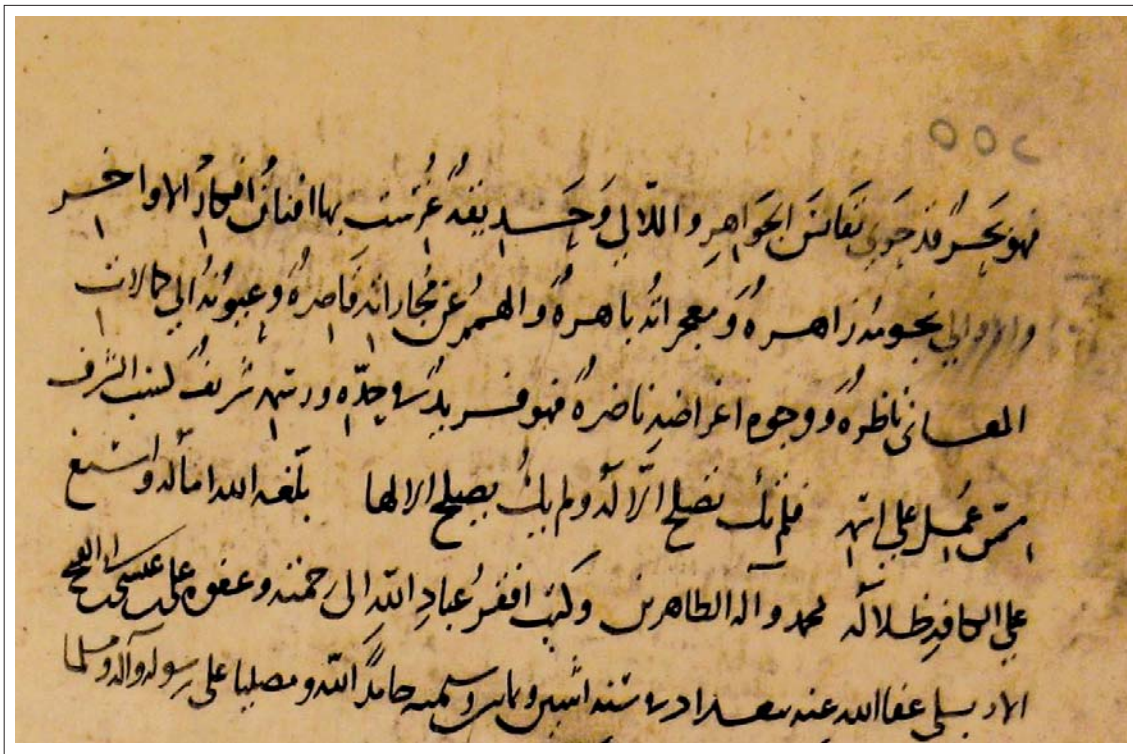 ٥٥٢
فهو بحر قد حوى نفائس الجواهر واللآلي وحديقة غرست بها افنان افكار الاواخر
والاوالي نجومه زاهرة ومعجزاته باهرة والهمم عن مجاراته قاصرة وعيونه الى كمالات
المعاني ناظرة ووجوه اغراضه ناضرة فهو فريد حده ورتبته شريف لنسب الشرف
عمل على فلم تك تصلح الا له ولم يك يصلح الا لها بلغه الله اماله واسبغ
على الكافة ظلاله بمحمد وآله الطاهرين وكتب افقر عباد الله الى رحمته وعفوه على بن عيسى بن ابى الفتح
الاربلى عفا الله عنه ببغداد سنة اثنين وثمانين وستمية حامدًا لله ومصليا على رسوله وآله ومسلما